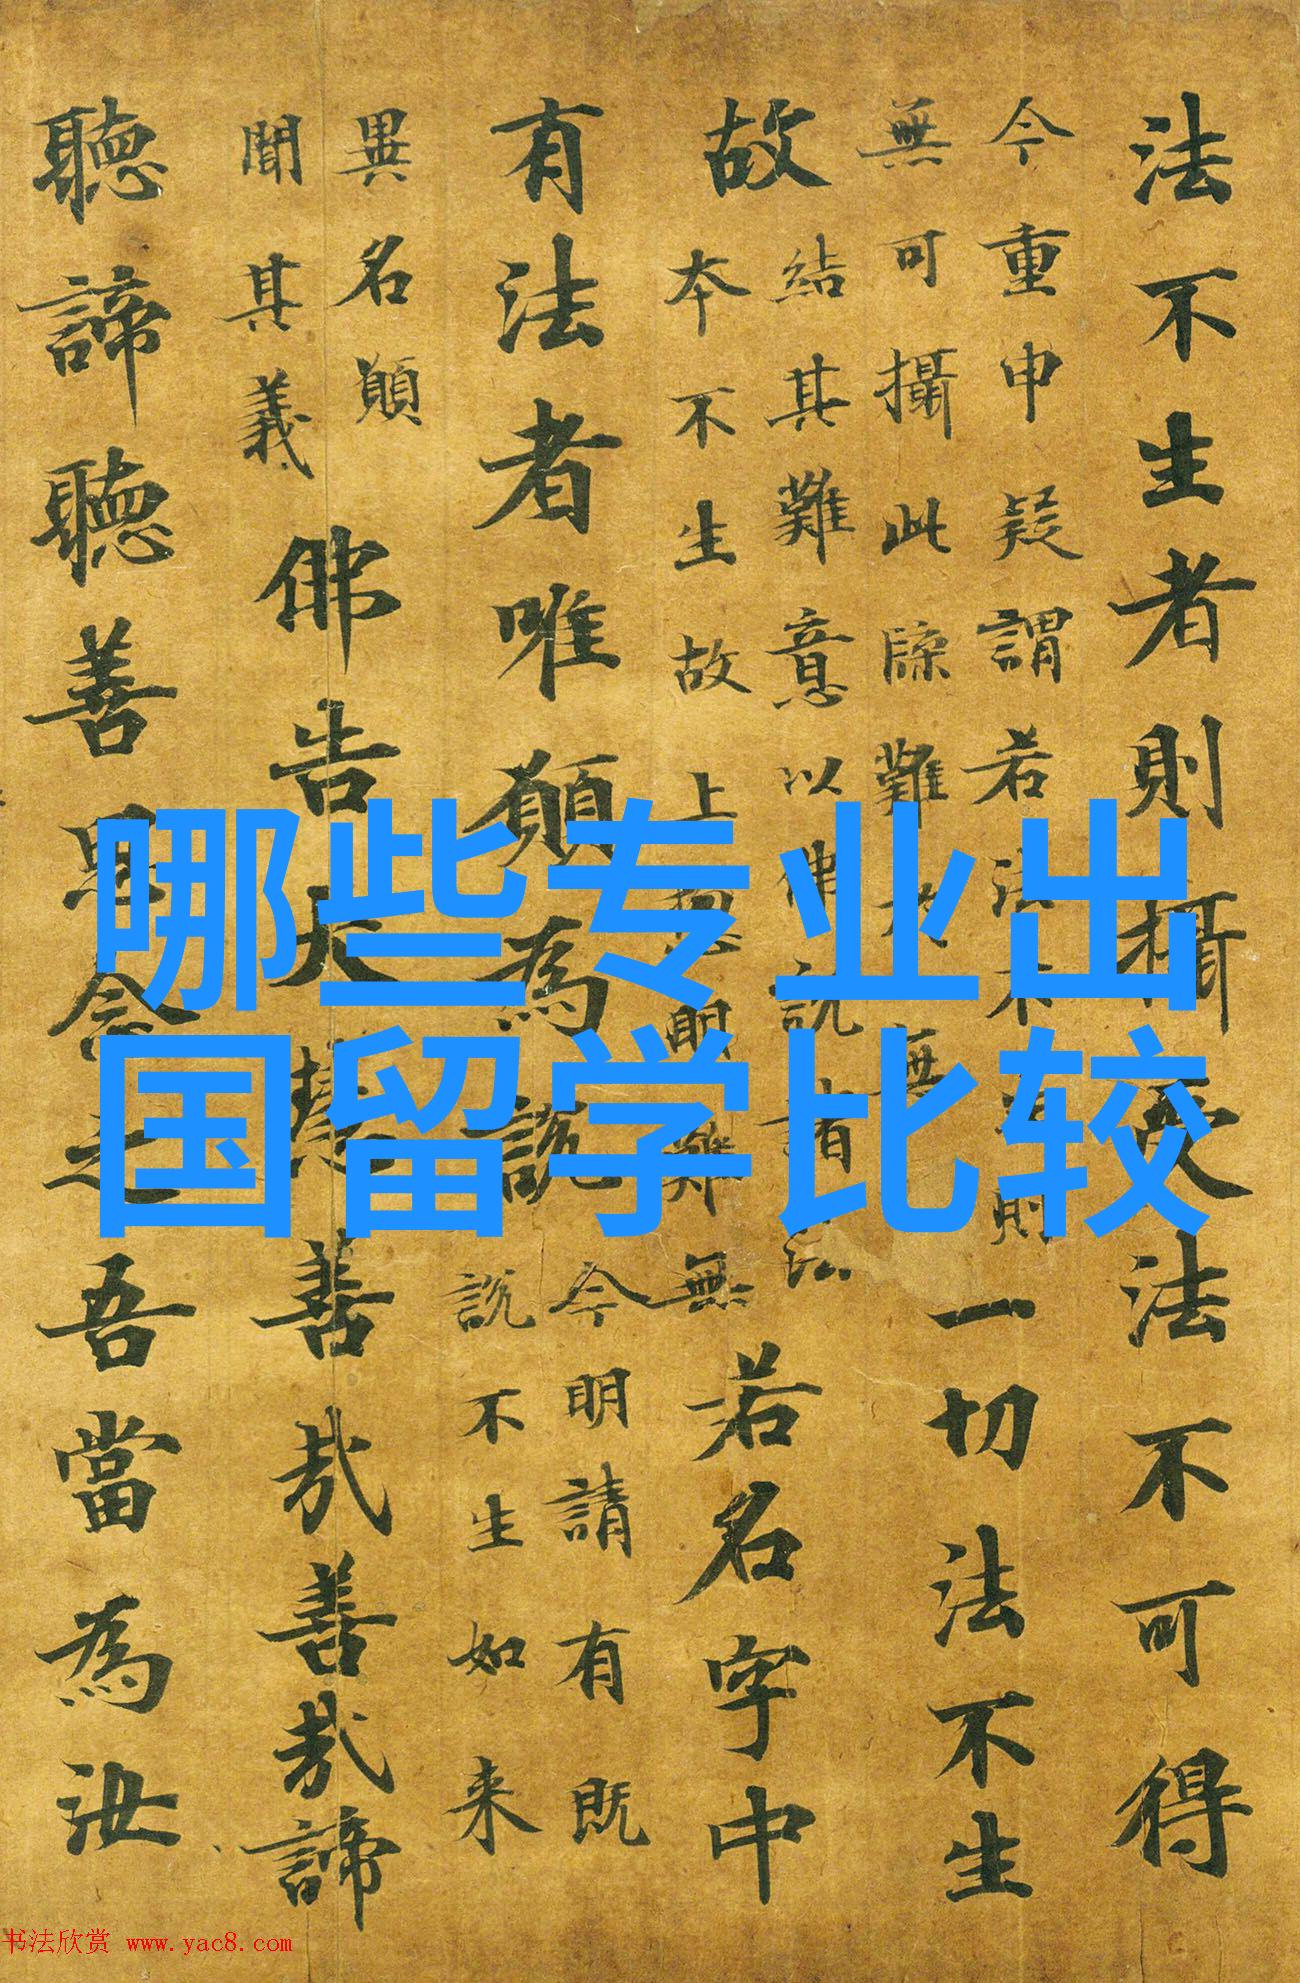 哪些专业出
国留学比较
法不生者則攝受法不可得
今重申疑謂若法不則
無可攝此牒難無
一切法不生
故
結其難意以佛說諸法
本不生故上明難無
若名字中
有法者唯願為說
今明請有既
說不生如来
異名願
聞其義
佛告大慧善哉善哉諦
聽諦聽善思念之吾當為汝
书法欣赏 www.yac8.com